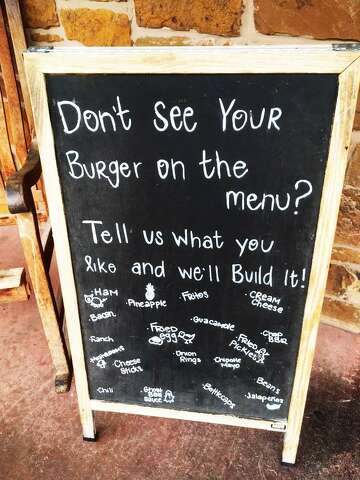 Don't See Your
Burger on the
menu?
Tell us what you
like and we'll Build It!
·Ham
·Pineapple
·Fritos
·Cream
Cheese
·Bacon
·Fried
egg
·Guacamole
·Chop
BBQ
·Ranch
·Fried
Pickles
·Mushrooms
·Cheese
Sticks
·Onion
Rings
·Chipotle
Mayo
·Chili
·Ghost
BBQ
Sauce
·Bottlecaps
·Beans
·Jalapeños